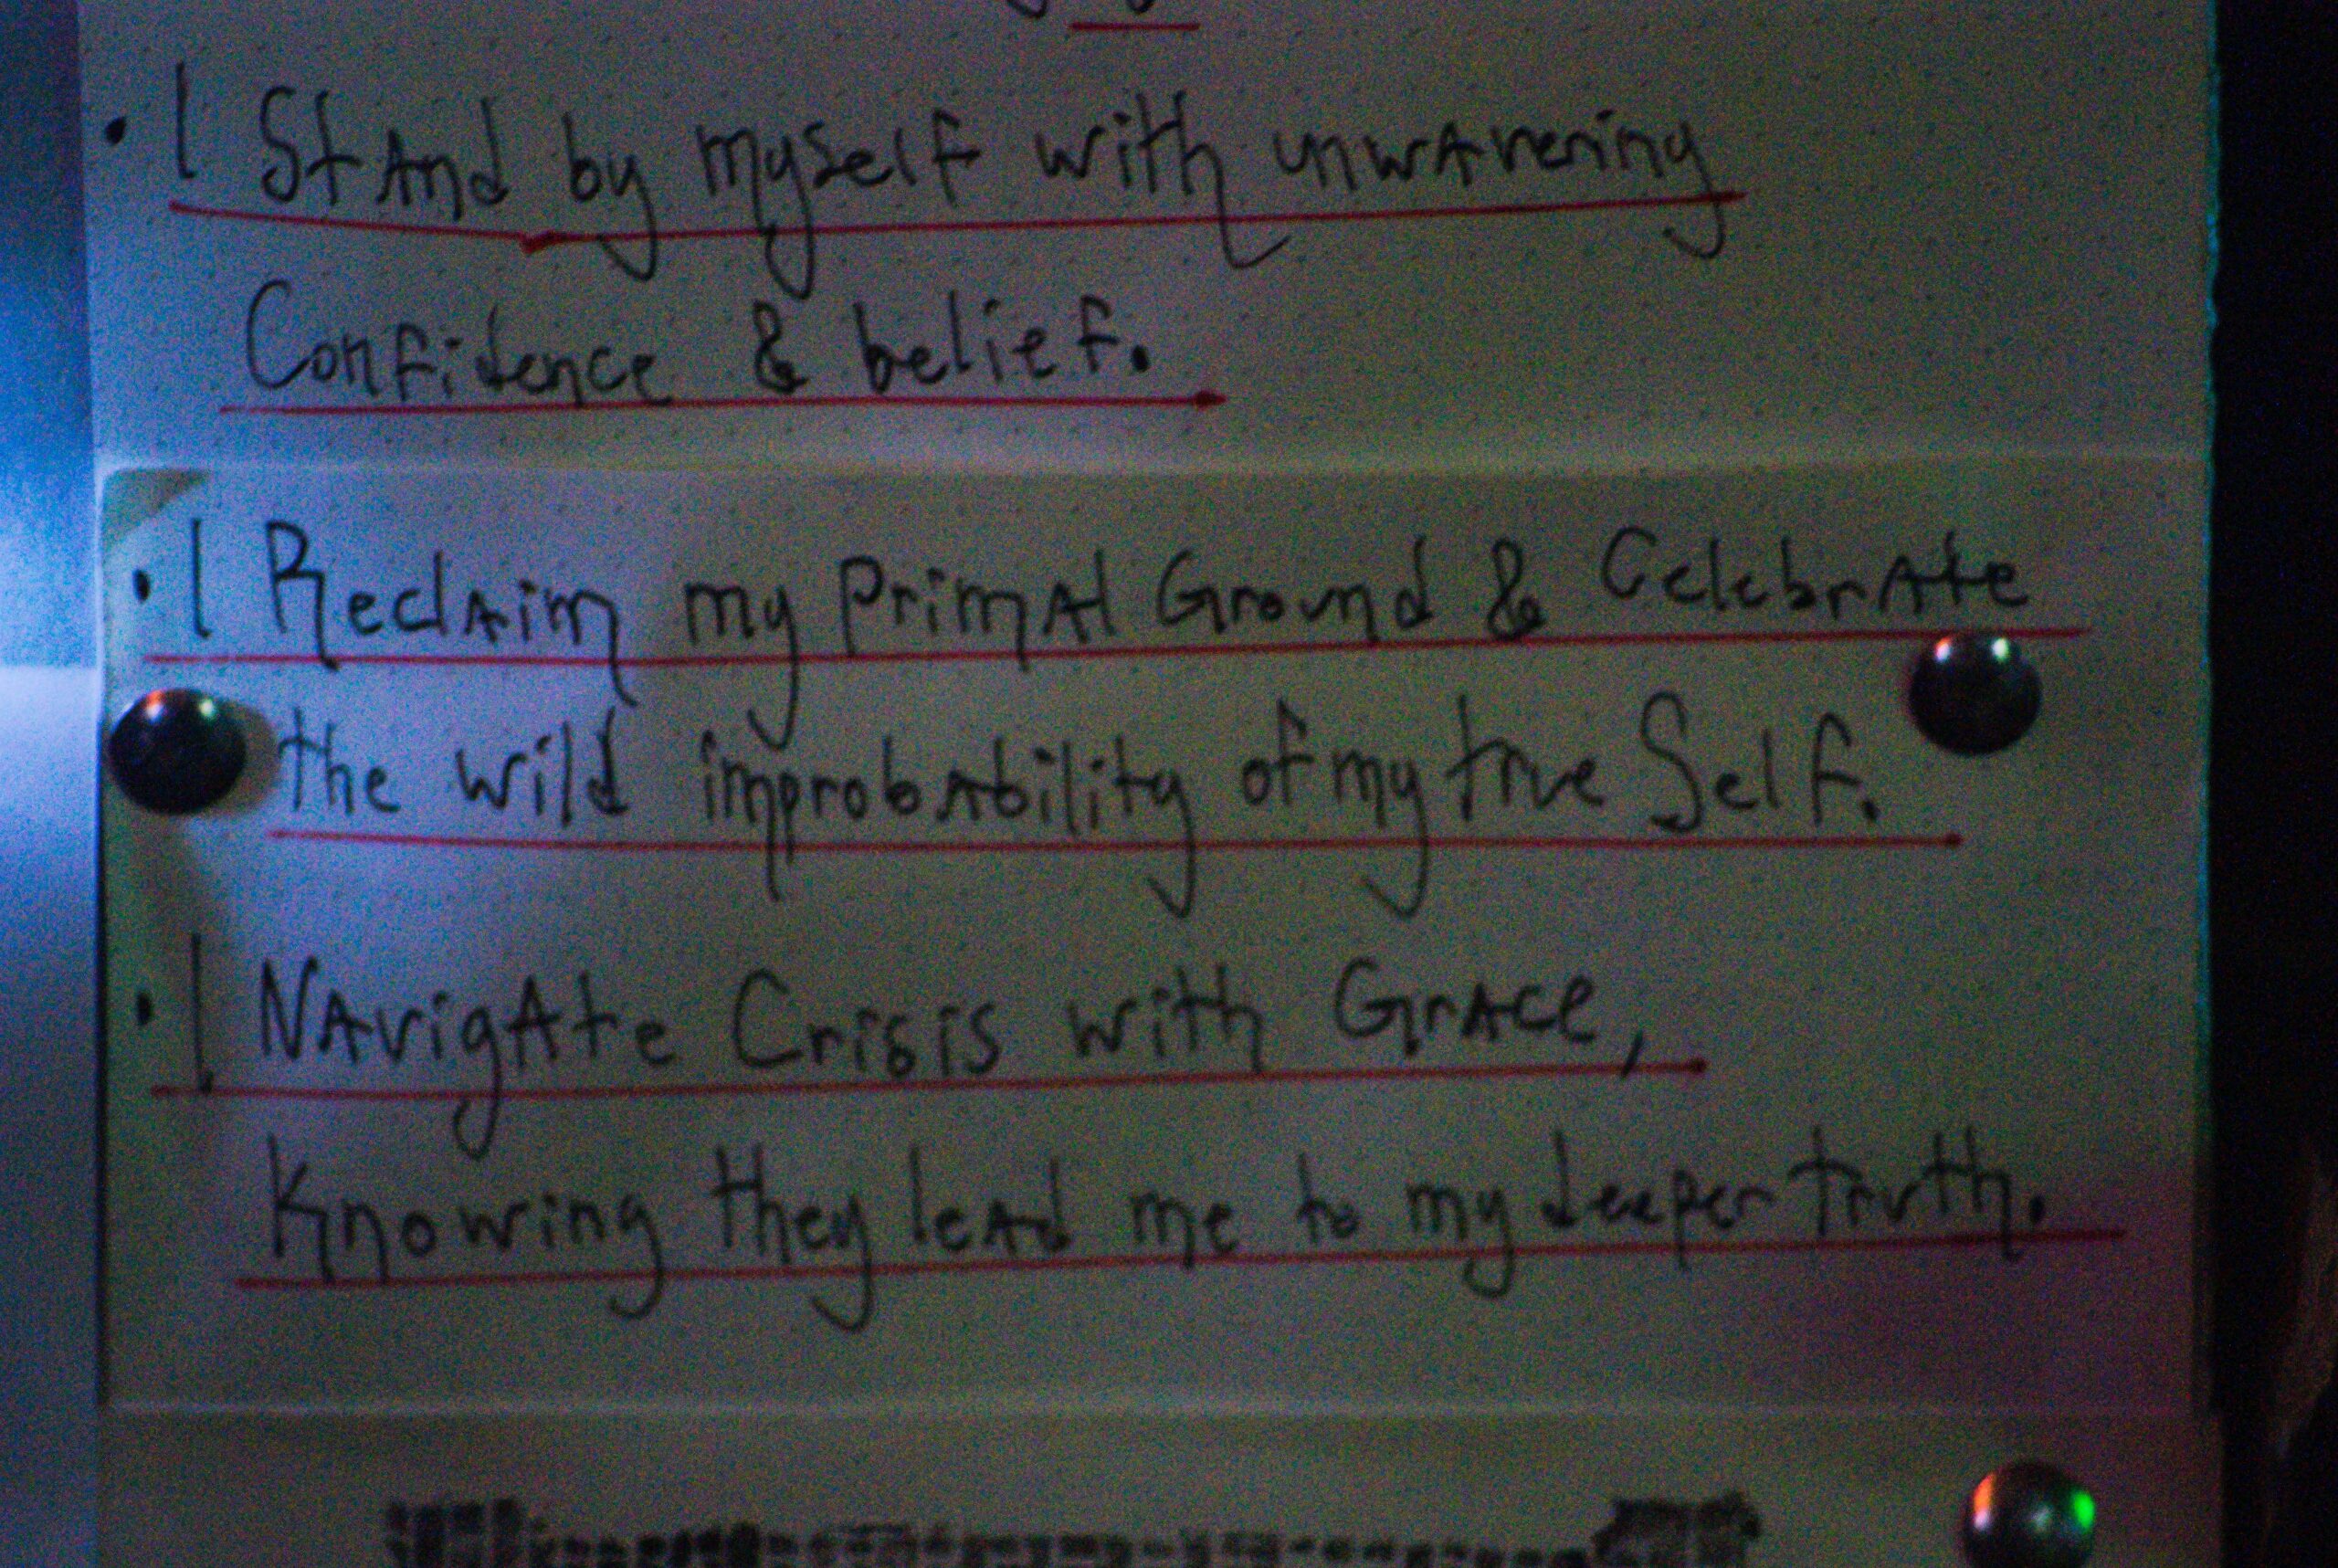 • I Stand by myself with unwavering
Confidence & belief.
• I Reclaim my Primal Ground & Celebrate
the wild improbability of my true Self.
• I Navigate Crisis with Grace,
Knowing they lead me to my deeper truth.